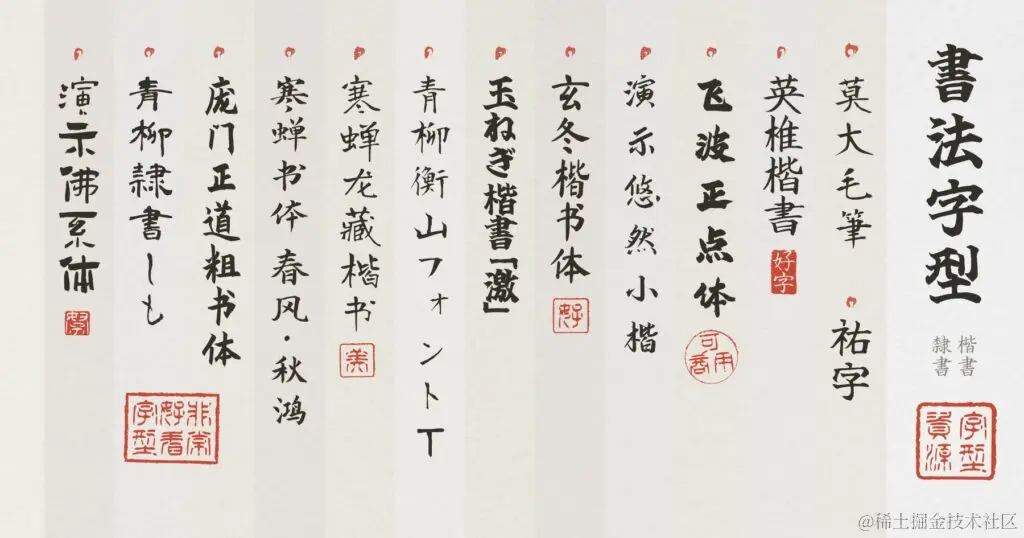 書法字型
楷書
隸書
字型
資源
莫大毛筆
祐字
英椎楷書
好字
飞波正点体
可商用
演示悠然小楷
玄冬楷书体
好
玉ねぎ楷書「激」
青柳衡山フォントT
寒蝉龙藏楷书
美
寒蝉书体 春风·秋鸿
庞门正道粗书体
青柳隷書しも
非常
好看
字型
演示佛系体
@稀土掘金技术社区